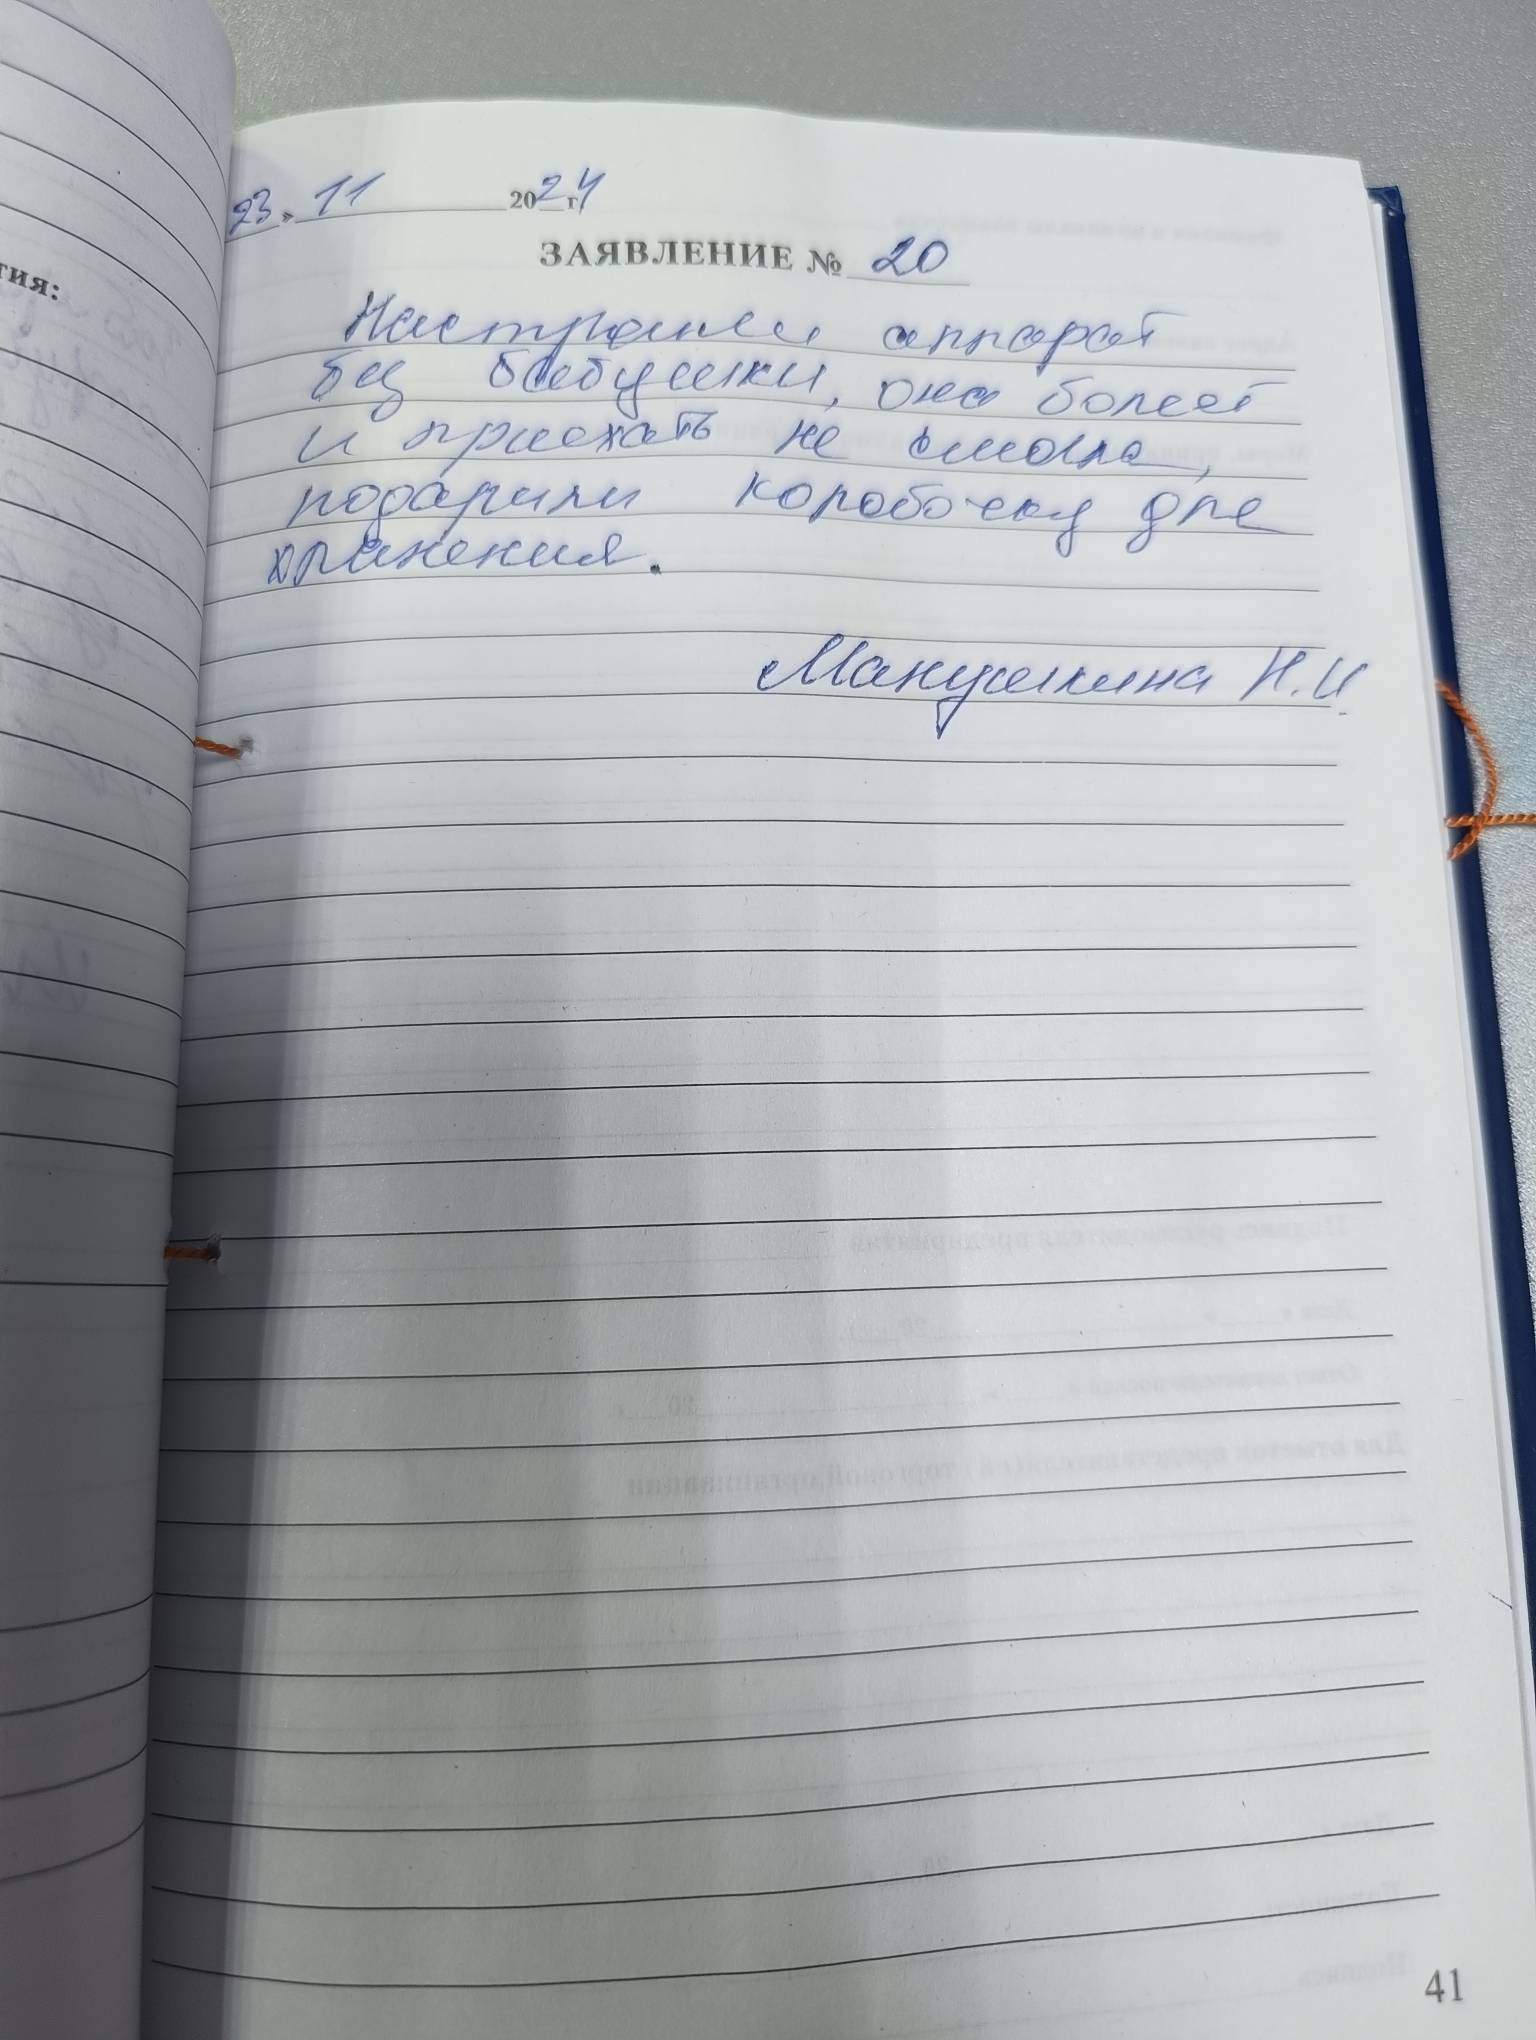 тия:
23 » 11 2024 г
ЗАЯВЛЕНИЕ № 20
Настроили аппарат
без бабушки, она болеет
и приехать не смогла,
подарили коробочку для
хранения.
Манушкина Н.И.
41